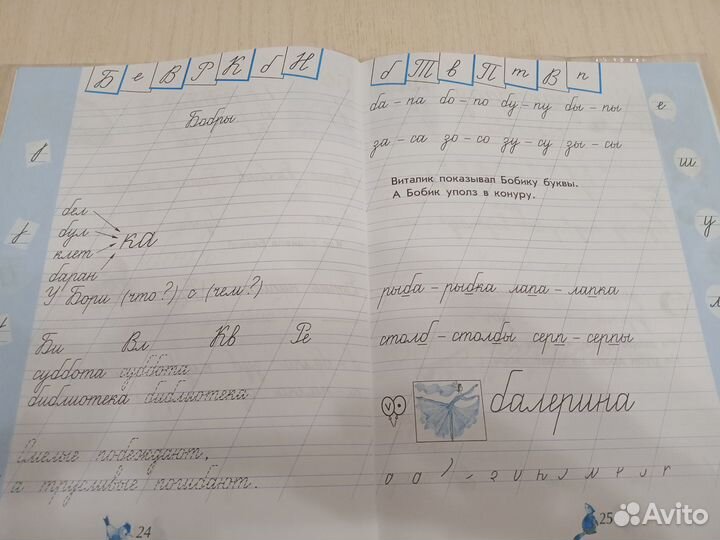 Б е В Р К б Н
Бобры
бел
бул
клет
баран
ка
У Бори (что?) с (чем?)
Би Вл Кв Ре
суббота суббота
библиотека библиотека
Смелые побеждают,
а трусливые погибают.
24
б Т в П т В п
ба – па бо – по бу – пу бы – пы
за – са зо – со зу – су зы – сы
Виталик показывал Бобику буквы.
А Бобик уполз в конуру.
рыба – рыбка лапа – лапка
столб – столбы серп – серпы
балерина
25
е
ш
у
Avito